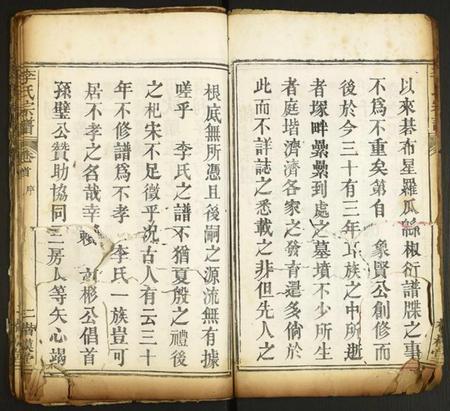 以來碁布星羅瓜緜椒衍譜牒之事
不爲不重矣第自 象賢公創修而
後於今三十有三年
族之中所逝
者塚畔纍纍到處之墓墳不少所生
者庭堦濟濟各家之發育還多倘於
此而不詳誌之悉載之非但先人之
根底無所憑且後嗣之源流無有據
嗟乎 李氏之譜不猶夏殷之禮後
之杞宋不足徵乎况古人有云三十
年不修譜爲不孝 李氏一族豈可
居不孝之名哉幸
彬公倡首
孫璧公贊助協同
房人等矢心竭
李氏宗譜
卷首
序
二